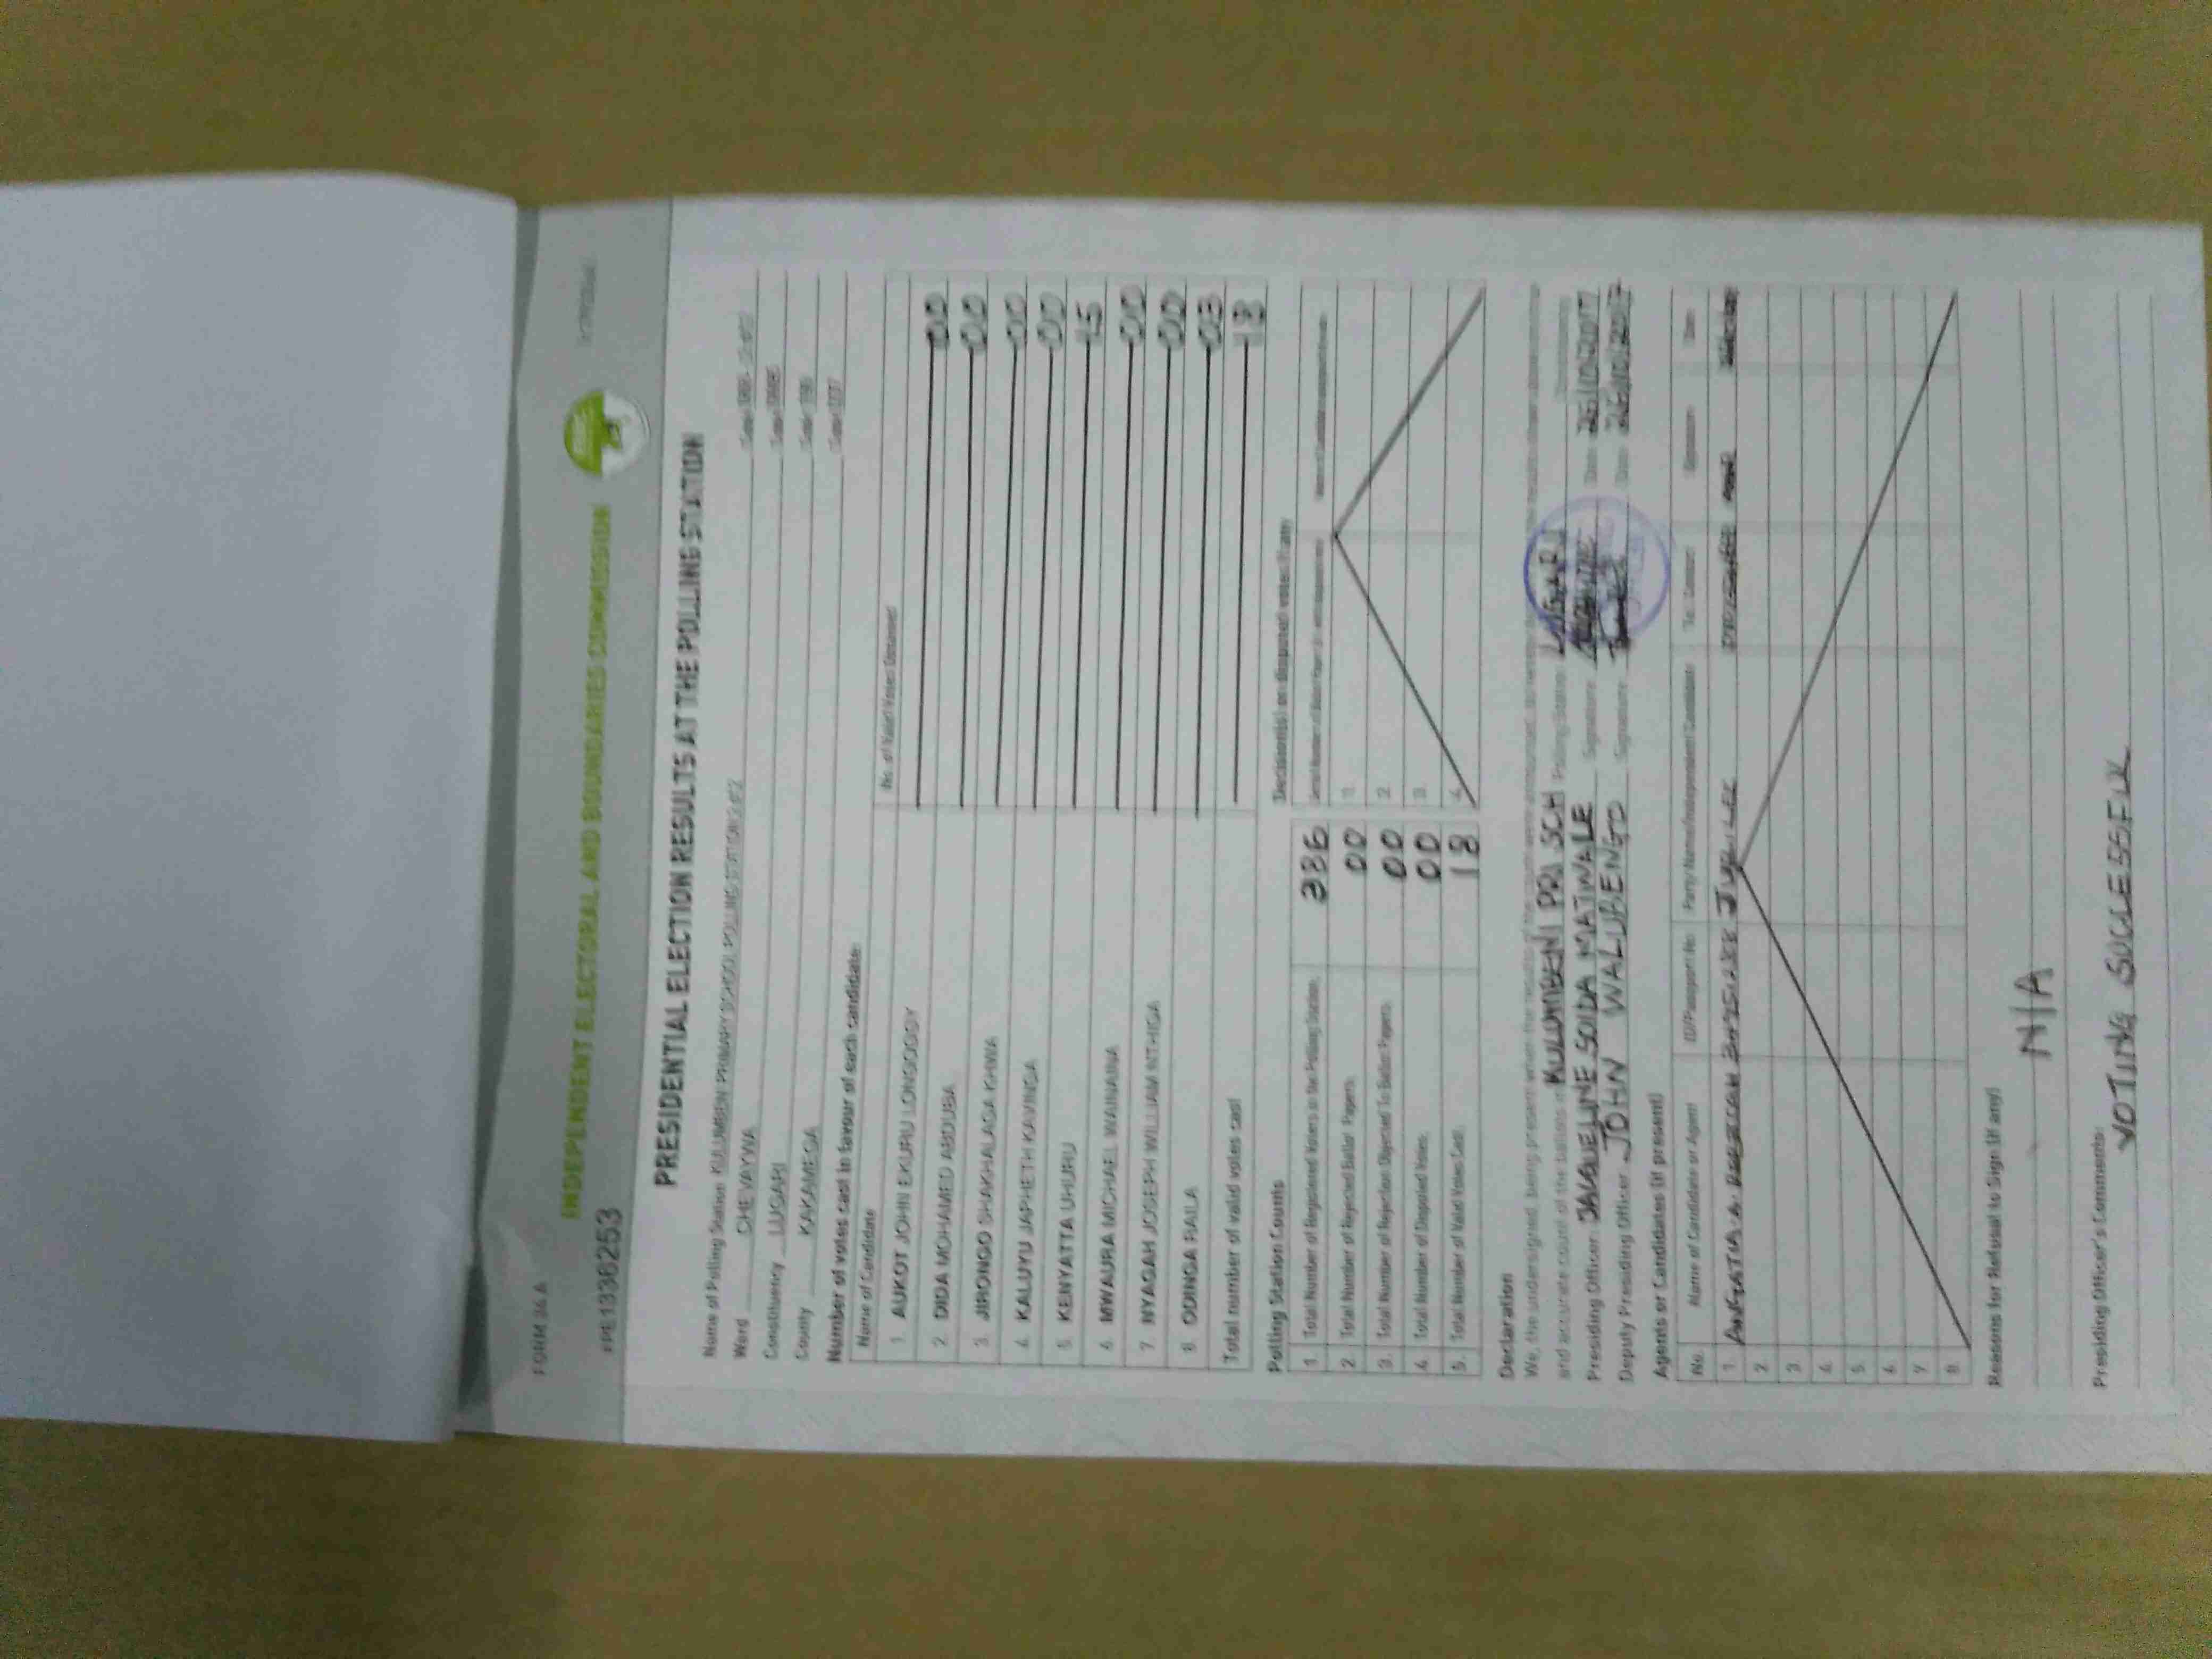 FORM 34 A
INDEPENDENT ELECTORAL AND BOUNDARIES COMMISSION
PRESIDENTIAL ELECTION RESULTS AT THE POLLING STATION
Name of Polling Station KULUMBENI PRIMARY SCHOOL POLLING STATION 2 of 2
Ward CHEVAYWA
Constituency LUGARI
County KAKAMEGA
Number of votes cast in favour of each candidate:
Name of Candidate No. of Valid Votes Obtained
1. AUKOT JOHN EKURU LONGOGGY 00
2. DIDA MOHAMED ABDUBA 00
3. JIRONGO SHAKHALAGA KHWA 00
4. KALUYU JAPHETH KAVINGA 00
5. KENYATTA UHURU 15
6. MWAURA MICHAEL WAINAINA 00
7. NYAGAH JOSEPH WILLIAM NTHIGA 00
8. ODINGA RAILA 03
Total number of valid votes cast 18
Polling Station Counts
1. Total Number of Registered Voters in the Polling Station 386
2. Total Number of Rejected Ballot Papers 00
3. Total Number of Rejection Objected To Ballot Papers 00
4. Total Number of Disputed Votes 00
5. Total Number of Valid Votes Cast 18
Decision(s) on disputed votes if any
1.
2.
3.
4.
Declaration
We, the undersigned, being present when the results of the count were announced,
KULUMBENI PRI SCH Polling Station LUGARI
Presiding Officer JACQUELINE SOIDA MATIWALE Signature Date 26/10/2017
Deputy Presiding Officer JOHN WALUBENGO Signature Date 26/10/2017
Agents or Candidates (if present)
No. Name of Candidate or Agent ID/Passport No Party Name/Independent Candidate Tel. Contact Signature Date
1. JUBILEE
2.
3.
4.
5.
6.
7.
8.
Reasons for Refusal to Sign (if any)
N/A
Presiding Officer's Comments:
VOTING SUCCESSFUL